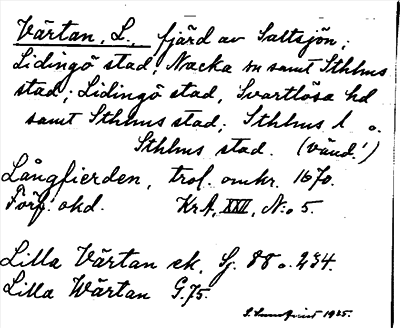 Värtan, L. fjärd av Saltsjön;
Lidingö stad, Nacka sn samt Sthlms
stad; Lidingö stad, Svartlösa hd
samt Sthlms stad; Sthlms l o.
Sthlms stad. (vänd!)
Långfierden, trol. omkr. 1670.
Förf. okd. KrA, XXV, N:o 5.
Lilla Värtan ek. Sj. 88 o. 234.
Lilla Wärtan G. 75.
1925.